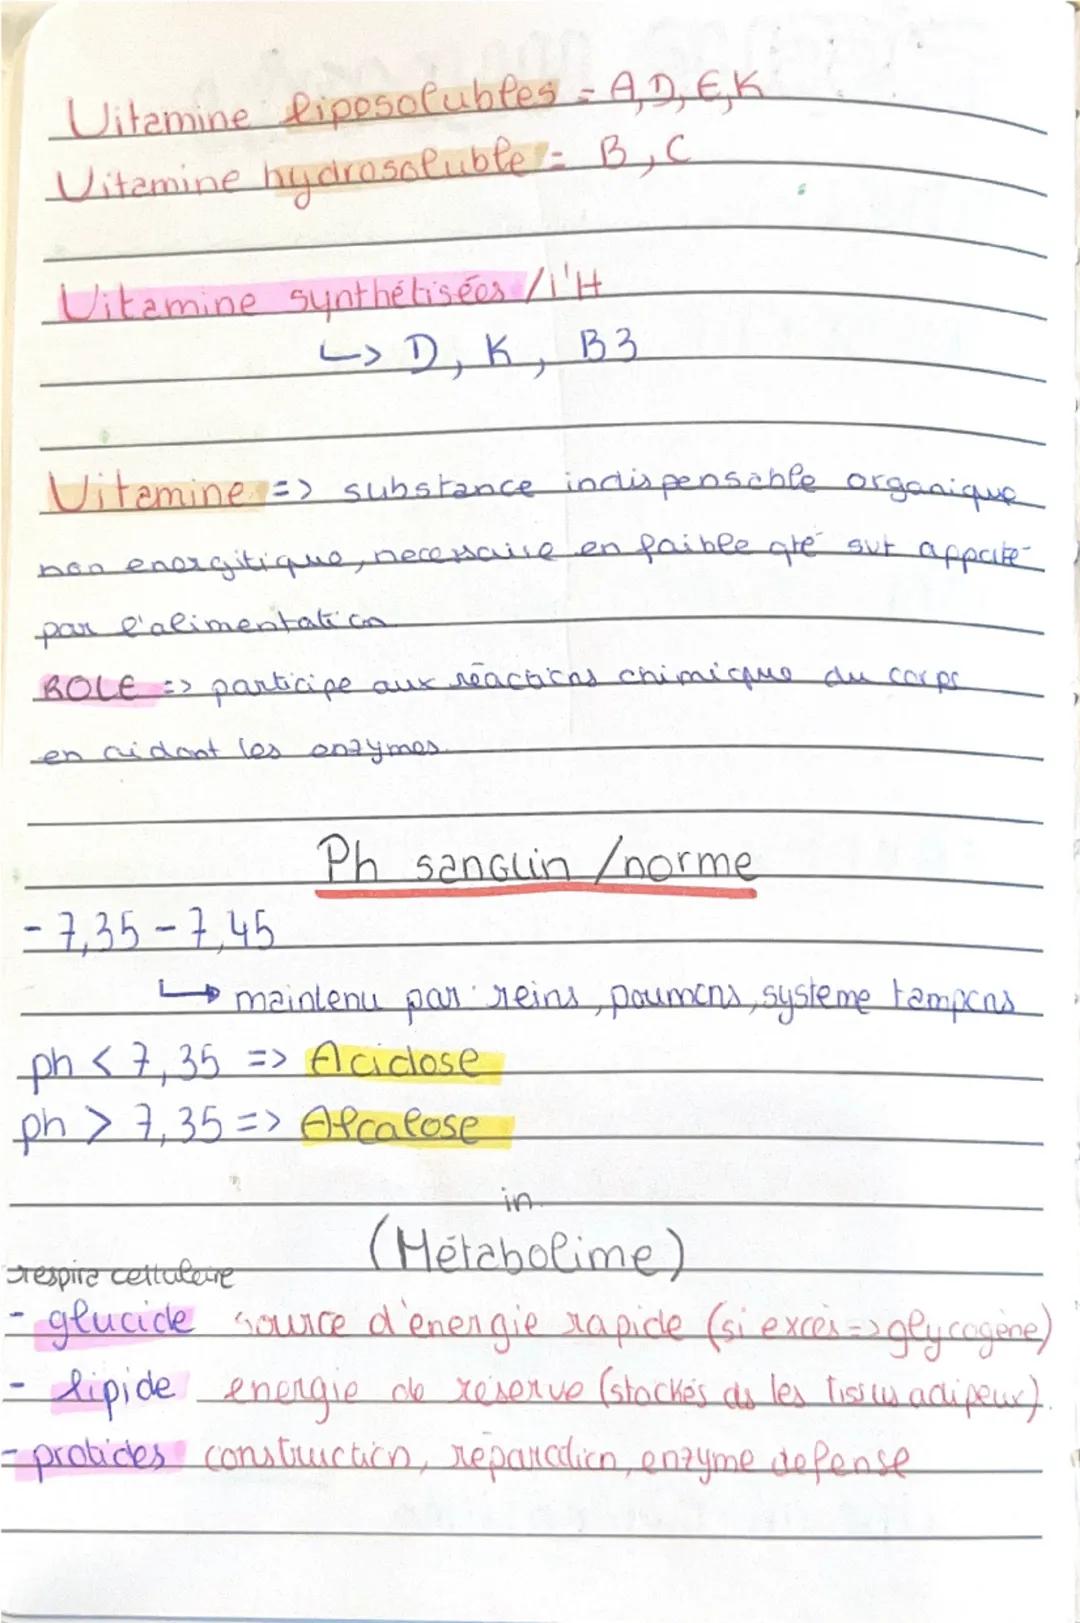 Vitamine liposolubles = A, D, E, K
Vitamine hydrosoluble = B, C
Vitamine synthétisées /l'H
↳ D, K, B3
Vitamine => substance indispensable organique
non energitique, necessaire en faible qté sut apporté
par l'alimentation
ROLE => participe aux réactions chimique du corps
en aidant les enzymes.
Ph sanguin /norme
- 7,35 - 7,45
↳ maintenu par reins, poumons, systeme tampons
ph < 7,35 => Acidose
ph > 7,35 => Alcalose
in
(Métabolime)
respira cellulaire
- glucide source d'énergie rapide (si excès => glycogène)
- lipide energie de réserve (stockés ds les tissus adipeux).
- protides construction, réparation, enzyme defense